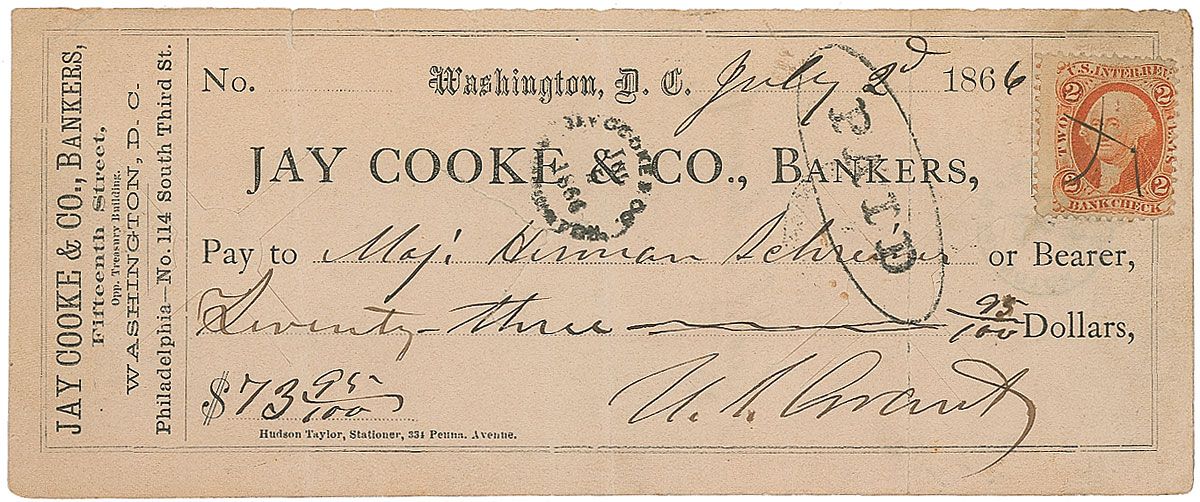 JAY COOKE & CO., BANKERS,
Fifteenth Street,
Opp. Treasury Building.
WASHINGTON, D. C.
Philadelphia—No. 114 South Third St.
No. Washington, D. C. July 2d 1866
U.S. INTER. REV.
2 2
TWO CENTS
2 2
BANK CHECK
JAY COOKE & CO., BANKERS,
JAY COOKE & CO
JUL
1866
PAID
Pay to Maj. Herman Schreiner or Bearer,
Seventy-three 95/100 Dollars,
$73 95/100
U. S. Grant
Hudson Taylor, Stationer, 334 Penna. Avenue.